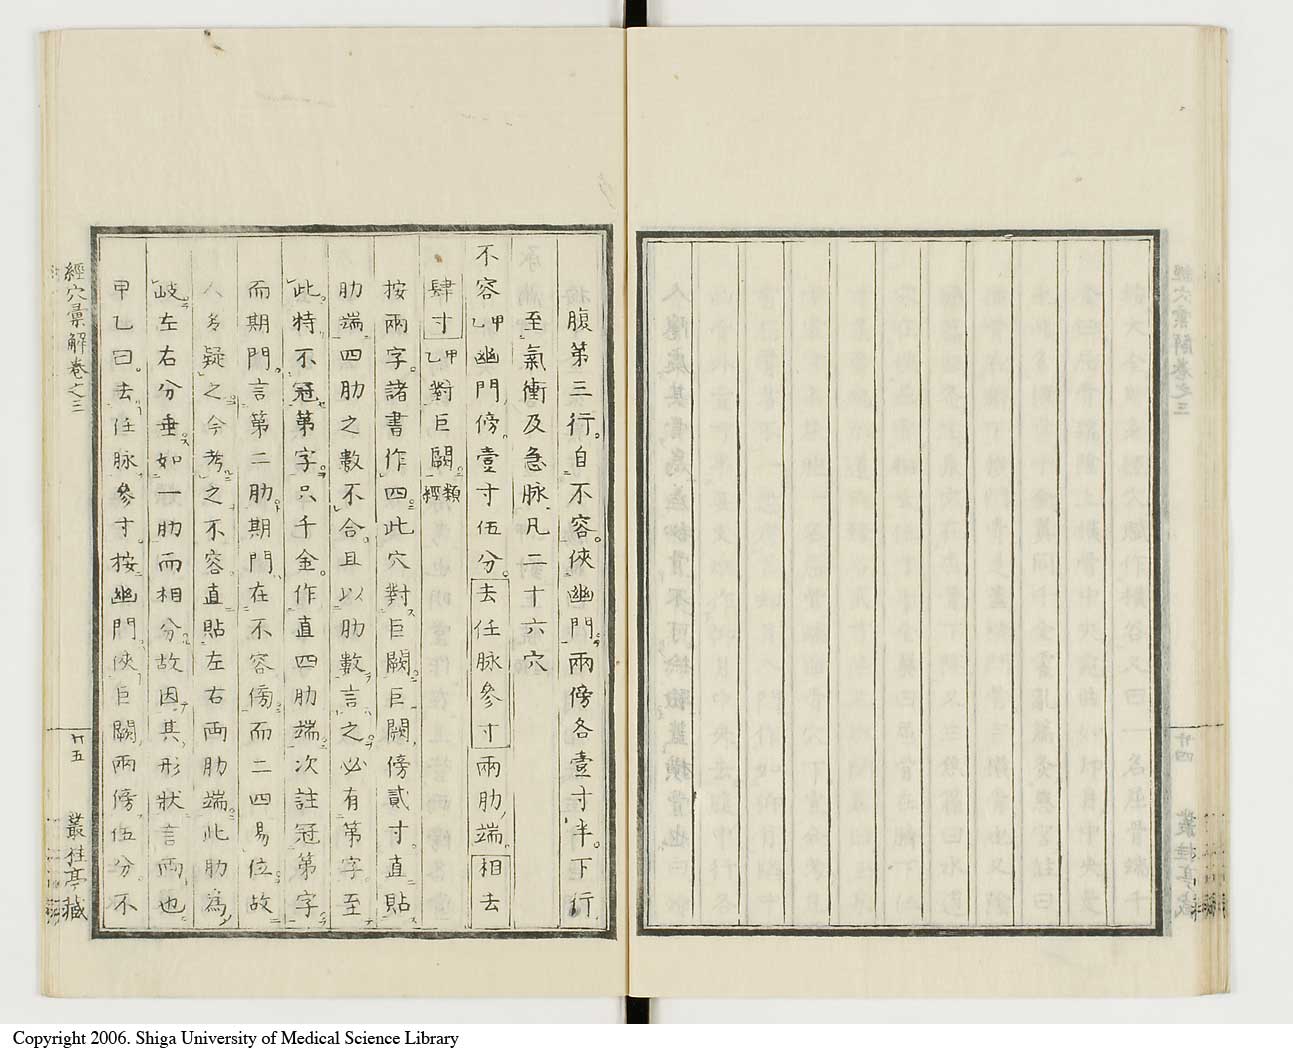 腹第三行。自不容俠幽門兩傍各壹寸半下行
至氣衝及急脉凡二十六穴
不容甲乙幽門傍壹寸伍分。去任脉參寸兩肋端相去
肆寸甲乙對巨闕。類經
按兩字諸書作四此穴對巨闕巨闕傍貳寸直貼
肋端四肋之數不合且以肋數言之必有第字至
此特不冠第字只千金作直四肋端次註冠第字
而期門言第二肋期門在不容傍而二四易位故
人多疑之今考之不容直貼左右両肋端此肋為
岐左右分垂如一肋而相分故因其形狀言両也
甲乙曰去任脉參寸按幽門俠巨闕兩傍伍分不
經穴彙解卷之三
廿五
叢桂亭藏
Copyright 2006. Shiga University of Medical Science Library